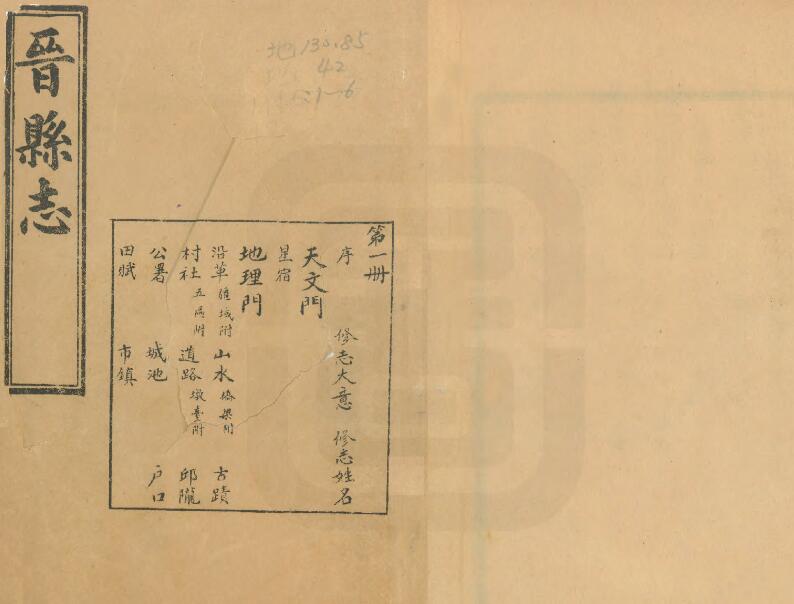 晉縣志
地130.85
42
:1-6
第一册
序 修志大意 修志姓名
天文門
星宿
地理門
沿革疆域附 山水橋梁附 古蹟
村社五區附 道路墩臺附 邱隴
公署 城池 户口
田賦 市鎮